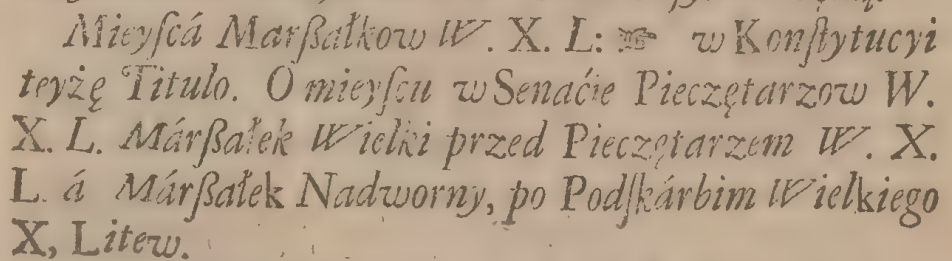 Mieyſcá Marſzałkow W. X. L: ☞ w Konſtytucyi
teyżę Titulo. O mieyſcu w Senaćie Pieczętarzow W.
X. L. Márſzałek Wielki przed Pieczętarzem W. X.
L. á Márſzałek Nadworny, po Podſkárbim Wielkiego
X, Litew.